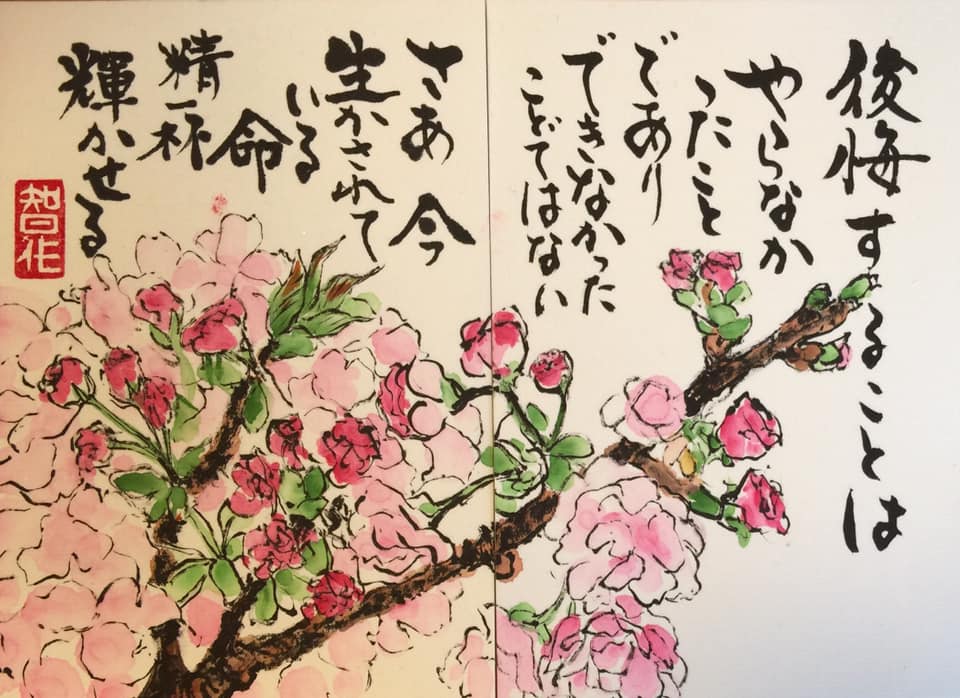 後悔することは
やらなか
ったこと
であり
できなかった
ことではない
さあ 今
生かされて
いる
命
精一杯
輝かせる